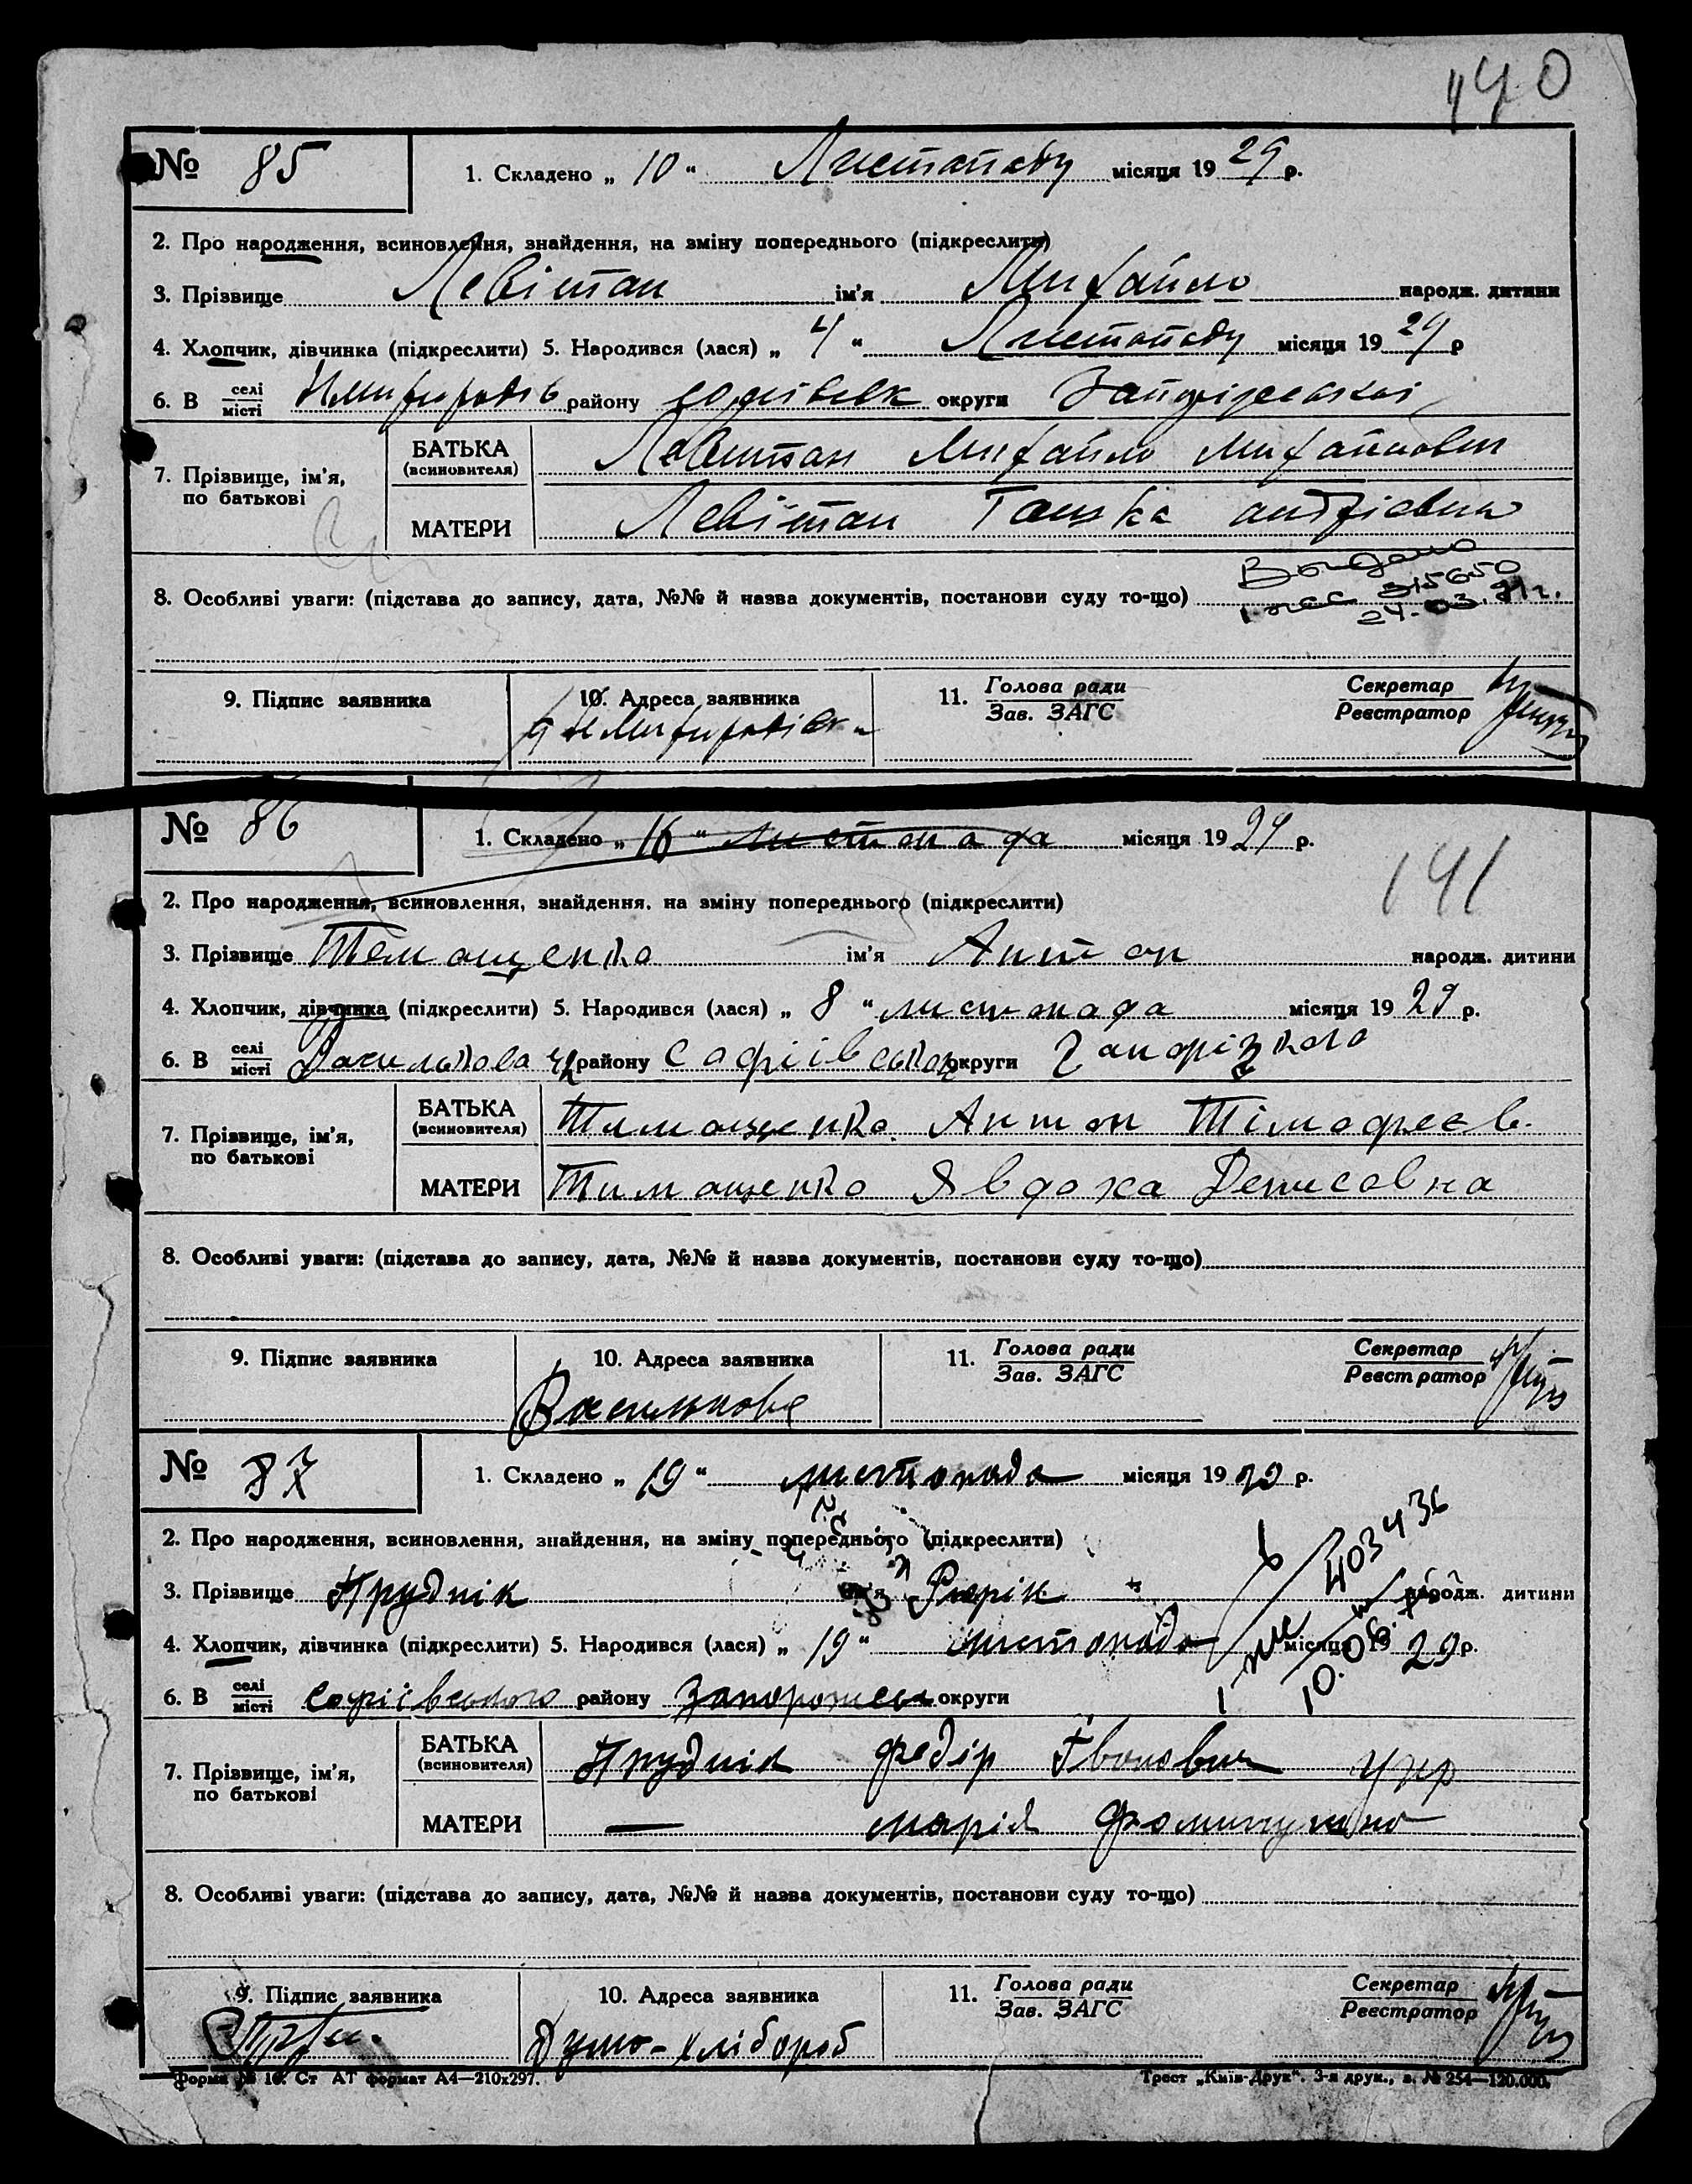 140
№ 85
1. Складено „ 10 “ Листопаду місяця 1929 р.
2. Про народження, всиновлення, знайдення, на зміну попереднього (підкреслити)
3. Прізвище Левітан ім'я Михайло народж. дитини
4. Хлопчик, дівчинка (підкреслити) 5. Народився (лася) „ 4 “ Листопаду місяця 1929 р
6. В селі/місті району округи
7. Прізвище, ім'я, по батькові
БАТЬКА (всиновителя) Левитан Михайло Михайлович
МАТЕРИ Левітан
8. Особливі уваги: (підстава до запису, дата, №№ й назва документів, постанови суду то-що)
315650
24.03.
9. Підпис заявника 10. Адреса заявника 11. Голова ради/Зав. ЗАГС Секретар/Реєстратор
№ 86
1. Складено „ 16 “ листопада місяця 1929 р.
141
2. Про народження, всиновлення, знайдення. на зміну попереднього (підкреслити)
3. Прізвище ім'я Антон народж. дитини
4. Хлопчик, дівчинка (підкреслити) 5. Народився (лася) „ 8 “ листопада місяця 1929 р.
6. В селі/місті району Софіївськ округи
7. Прізвище, ім'я, по батькові
БАТЬКА (всиновителя) Тимощенко Антон Тімофеєв.
МАТЕРИ Тимощенко Явдоха Денисовна
8. Особливі уваги: (підстава до запису, дата, №№ й назва документів, постанови суду то-що)
9. Підпис заявника 10. Адреса заявника 11. Голова ради/Зав. ЗАГС Секретар/Реєстратор
№ 87
1. Складено „ 19 “ листопада місяця 1929 р.
2. Про народження, всиновлення, знайдення, на зміну попереднього (підкреслити)
403436
3. Прізвище Прудник ім'я народж. дитини
4. Хлопчик, дівчинка (підкреслити) 5. Народився (лася) „ 19 “ листопада місяця 1929 р.
10.06.
6. В селі/місті Софіївського району округи
7. Прізвище, ім'я, по батькові
БАТЬКА (всиновителя) Прудник Федір Івонович Укр
МАТЕРИ — Марія
8. Особливі уваги: (підстава до запису, дата, №№ й назва документів, постанови суду то-що)
9. Підпис заявника 10. Адреса заявника 11. Голова ради/Зав. ЗАГС Секретар/Реєстратор
хлібороб
Форма № 10. Ст АТ формат А4—210x297. Трест „Київ-Друк“. 3-я друк., з. № 254—120.000.